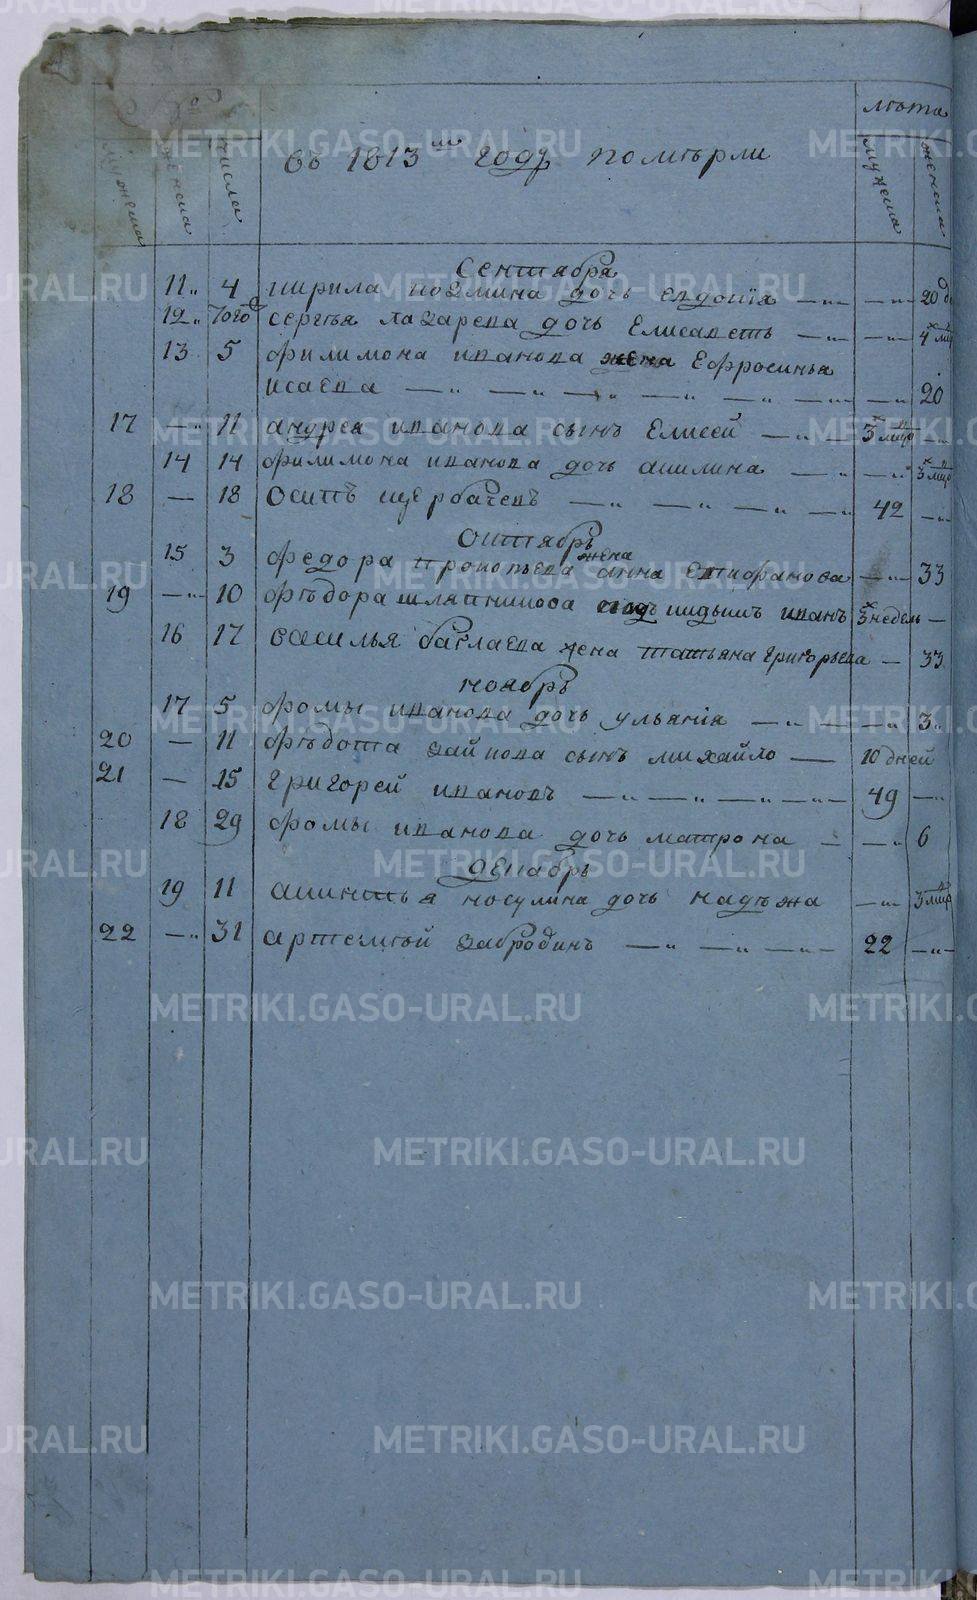 лѣта
мужеска
женска
числа
мужеска
женска
въ 1813м годȣ помѣрли
Сентября
11 „ 4 кирила козмина дочь евдокiя — „ — — „ — 20
12 „ Того сергѣя лазарева дочь Елисаветъ — „ — — „ — 4 мцъ
13 5 филимона иванова жена Ефросинья
исаева — „ — „ — „ — „ — „ — „ — — „ 20
17 — „ 11 андрея иванова сынъ Елисей — „ — 3 мцъ — „
14 14 филимона иванова дочь акилина — „ — — „ 3 мцъ
18 — 18 Осипъ щербачевъ — „ — „ — „ — „ 42 — „
Октябрь
15 3 федора прокопьева жена анна епифанова — „ — 33
19 — „ 10 фѣдора шляпникова иванъ 3 недель —
16 17 василья баклаева жена татьяна григорьева — 33
ноябрь
17 5 фомы иванова дочь ульянiя — „ — „ — — „ 3 „
20 — 11 фѣдота зайкова сынъ михайло — 10 дней
21 — 15 григорей ивановъ — „ — „ — „ — „ — 49 — „
18 29 фомы иванова дочь матрона — — „ 6
декабрь
19 11 акинтья носулина дочь надѣжа — „ — 3 мцъ
22 — „ 31 артемѣй забродинъ — „ — „ — „ — 22 — „ —
METRIKI.GASO-URAL.RU